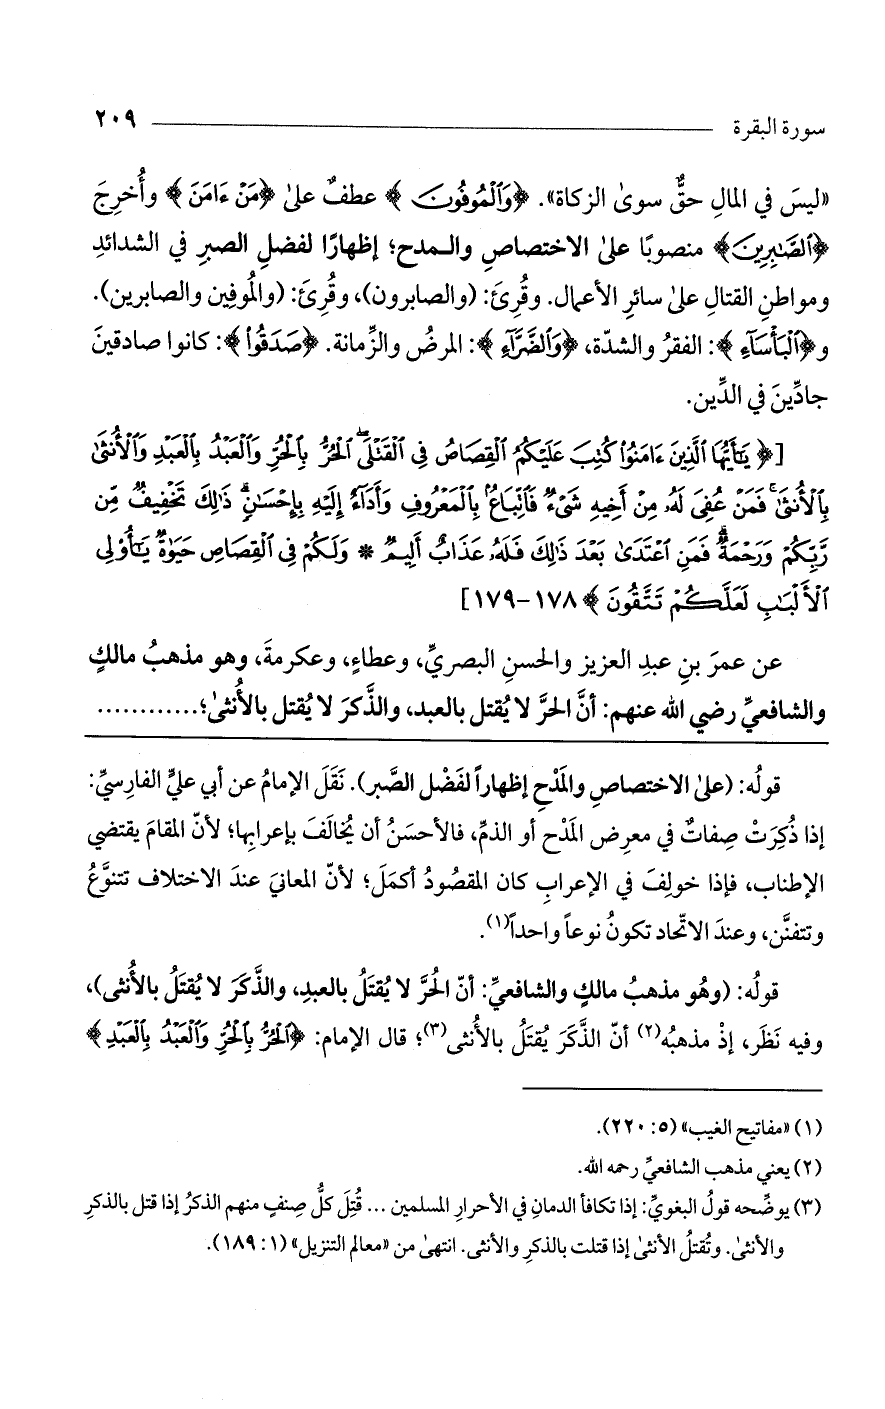 سورة البقرة ٢٠٩
«ليسَ في المالِ حقٌّ سوىٰ الزكاة». ﴿وَٱلْمُوفُونَ﴾ عطفٌ علىٰ ﴿مَنْ ءَامَنَ﴾ وأُخرِجَ
﴿ٱلصَّٰبِرِينَ﴾ منصوبًا علىٰ الاختصاصِ والـمدح؛ إظهارًا لفضلِ الصبرِ في الشدائدِ
ومواطنِ القتالِ علىٰ سائرِ الأعمال. وقُرِئَ: (والصابرون)، وقُرِئَ: (والمُوفِين والصابرين).
و﴿ٱلْبَأْسَآءِ﴾: الفقرُ والشدّة، ﴿وَٱلضَّرَّآءِ﴾: المرضُ والزِّمانة. ﴿صَدَقُوا۟﴾: كانوا صادقينَ
جادِّينَ في الدِّين.
[﴿يَٰٓأَيُّهَا ٱلَّذِينَ ءَامَنُوا۟ كُتِبَ عَلَيْكُمُ ٱلْقِصَاصُ فِى ٱلْقَتْلَى ۖ ٱلْحُرُّ بِٱلْحُرِّ وَٱلْعَبْدُ بِٱلْعَبْدِ وَٱلْأُنثَىٰ
بِٱلْأُنثَىٰ ۚ فَمَنْ عُفِىَ لَهُۥ مِنْ أَخِيهِ شَىْءٌ فَٱتِّبَاعٌۢ بِٱلْمَعْرُوفِ وَأَدَآءٌ إِلَيْهِ بِإِحْسَٰنٍ ۗ ذَٰلِكَ تَخْفِيفٌ مِّن
رَّبِّكُمْ وَرَحْمَةٌ ۗ فَمَنِ ٱعْتَدَىٰ بَعْدَ ذَٰلِكَ فَلَهُۥ عَذَابٌ أَلِيمٌ * وَلَكُمْ فِى ٱلْقِصَاصِ حَيَوٰةٌ يَٰٓأُو۟لِى
ٱلْأَلْبَٰبِ لَعَلَّكُمْ تَتَّقُونَ﴾ ١٧٨-١٧٩]
عن عمرَ بنِ عبدِ العزيز والحسنِ البصريِّ، وعطاءٍ، وعكرمةَ، وهو مذهبُ مالكٍ
والشافعيِّ رضي الله عنهم: أنَّ الحرَّ لا يُقتل بالعبد، والذَّكرَ لا يُقتل بالأُنثىٰ؛............
قولُه: (علىٰ الاختصاصِ والمَدْحِ إظهاراً لفَضْل الصَّبر). نَقَلَ الإمامُ عن أبي عليٍّ الفارِسيِّ:
إذا ذُكِرَتْ صِفاتٌ في معرِض المَدْح أو الذمِّ، فالأحسَنُ أن يُخالَفَ بإعرابِها؛ لأنّ المقامَ يقتضي
الإطناب، فإذا خولِفَ في الإعرابِ كان المقصُودُ أكمَلَ؛ لأنّ المعانيَ عندَ الاختلاف تتنوَّعُ
وتتفنَّن، وعندَ الاتّحاد تكونُ نوعاً واحداً(١).
قولُه: (وهُو مذهبُ مالكٍ والشافعيِّ: أنّ الحُرَّ لا يُقتَلُ بالعبدِ، والذَّكَرَ لا يُقتَلُ بالأُنثى)،
وفيه نَظَر، إذْ مذهبُه(٢) أنّ الذَّكَرَ يُقتَلُ بالأُنثى(٣)؛ قال الإمام: ﴿ٱلْحُرُّ بِٱلْحُرِّ وَٱلْعَبْدُ بِٱلْعَبْدِ﴾
(١) «مفاتيح الغيب» (٥: ٢٢٠).
(٢) يعني مذهب الشافعيِّ رحمه الله.
(٣) يوضِّحه قولُ البغويِّ: إذا تكافأ الدمانِ في الأحرارِ المسلمين ... قُتِلَ كلُّ صِنفٍ منهم الذكرُ إذا قتل بالذكرِ
والأنثىٰ. وتُقتلُ الأنثىٰ إذا قتلت بالذكرِ والأنثى. انتهىٰ من «معالم التنزيل» (١: ١٨٩).